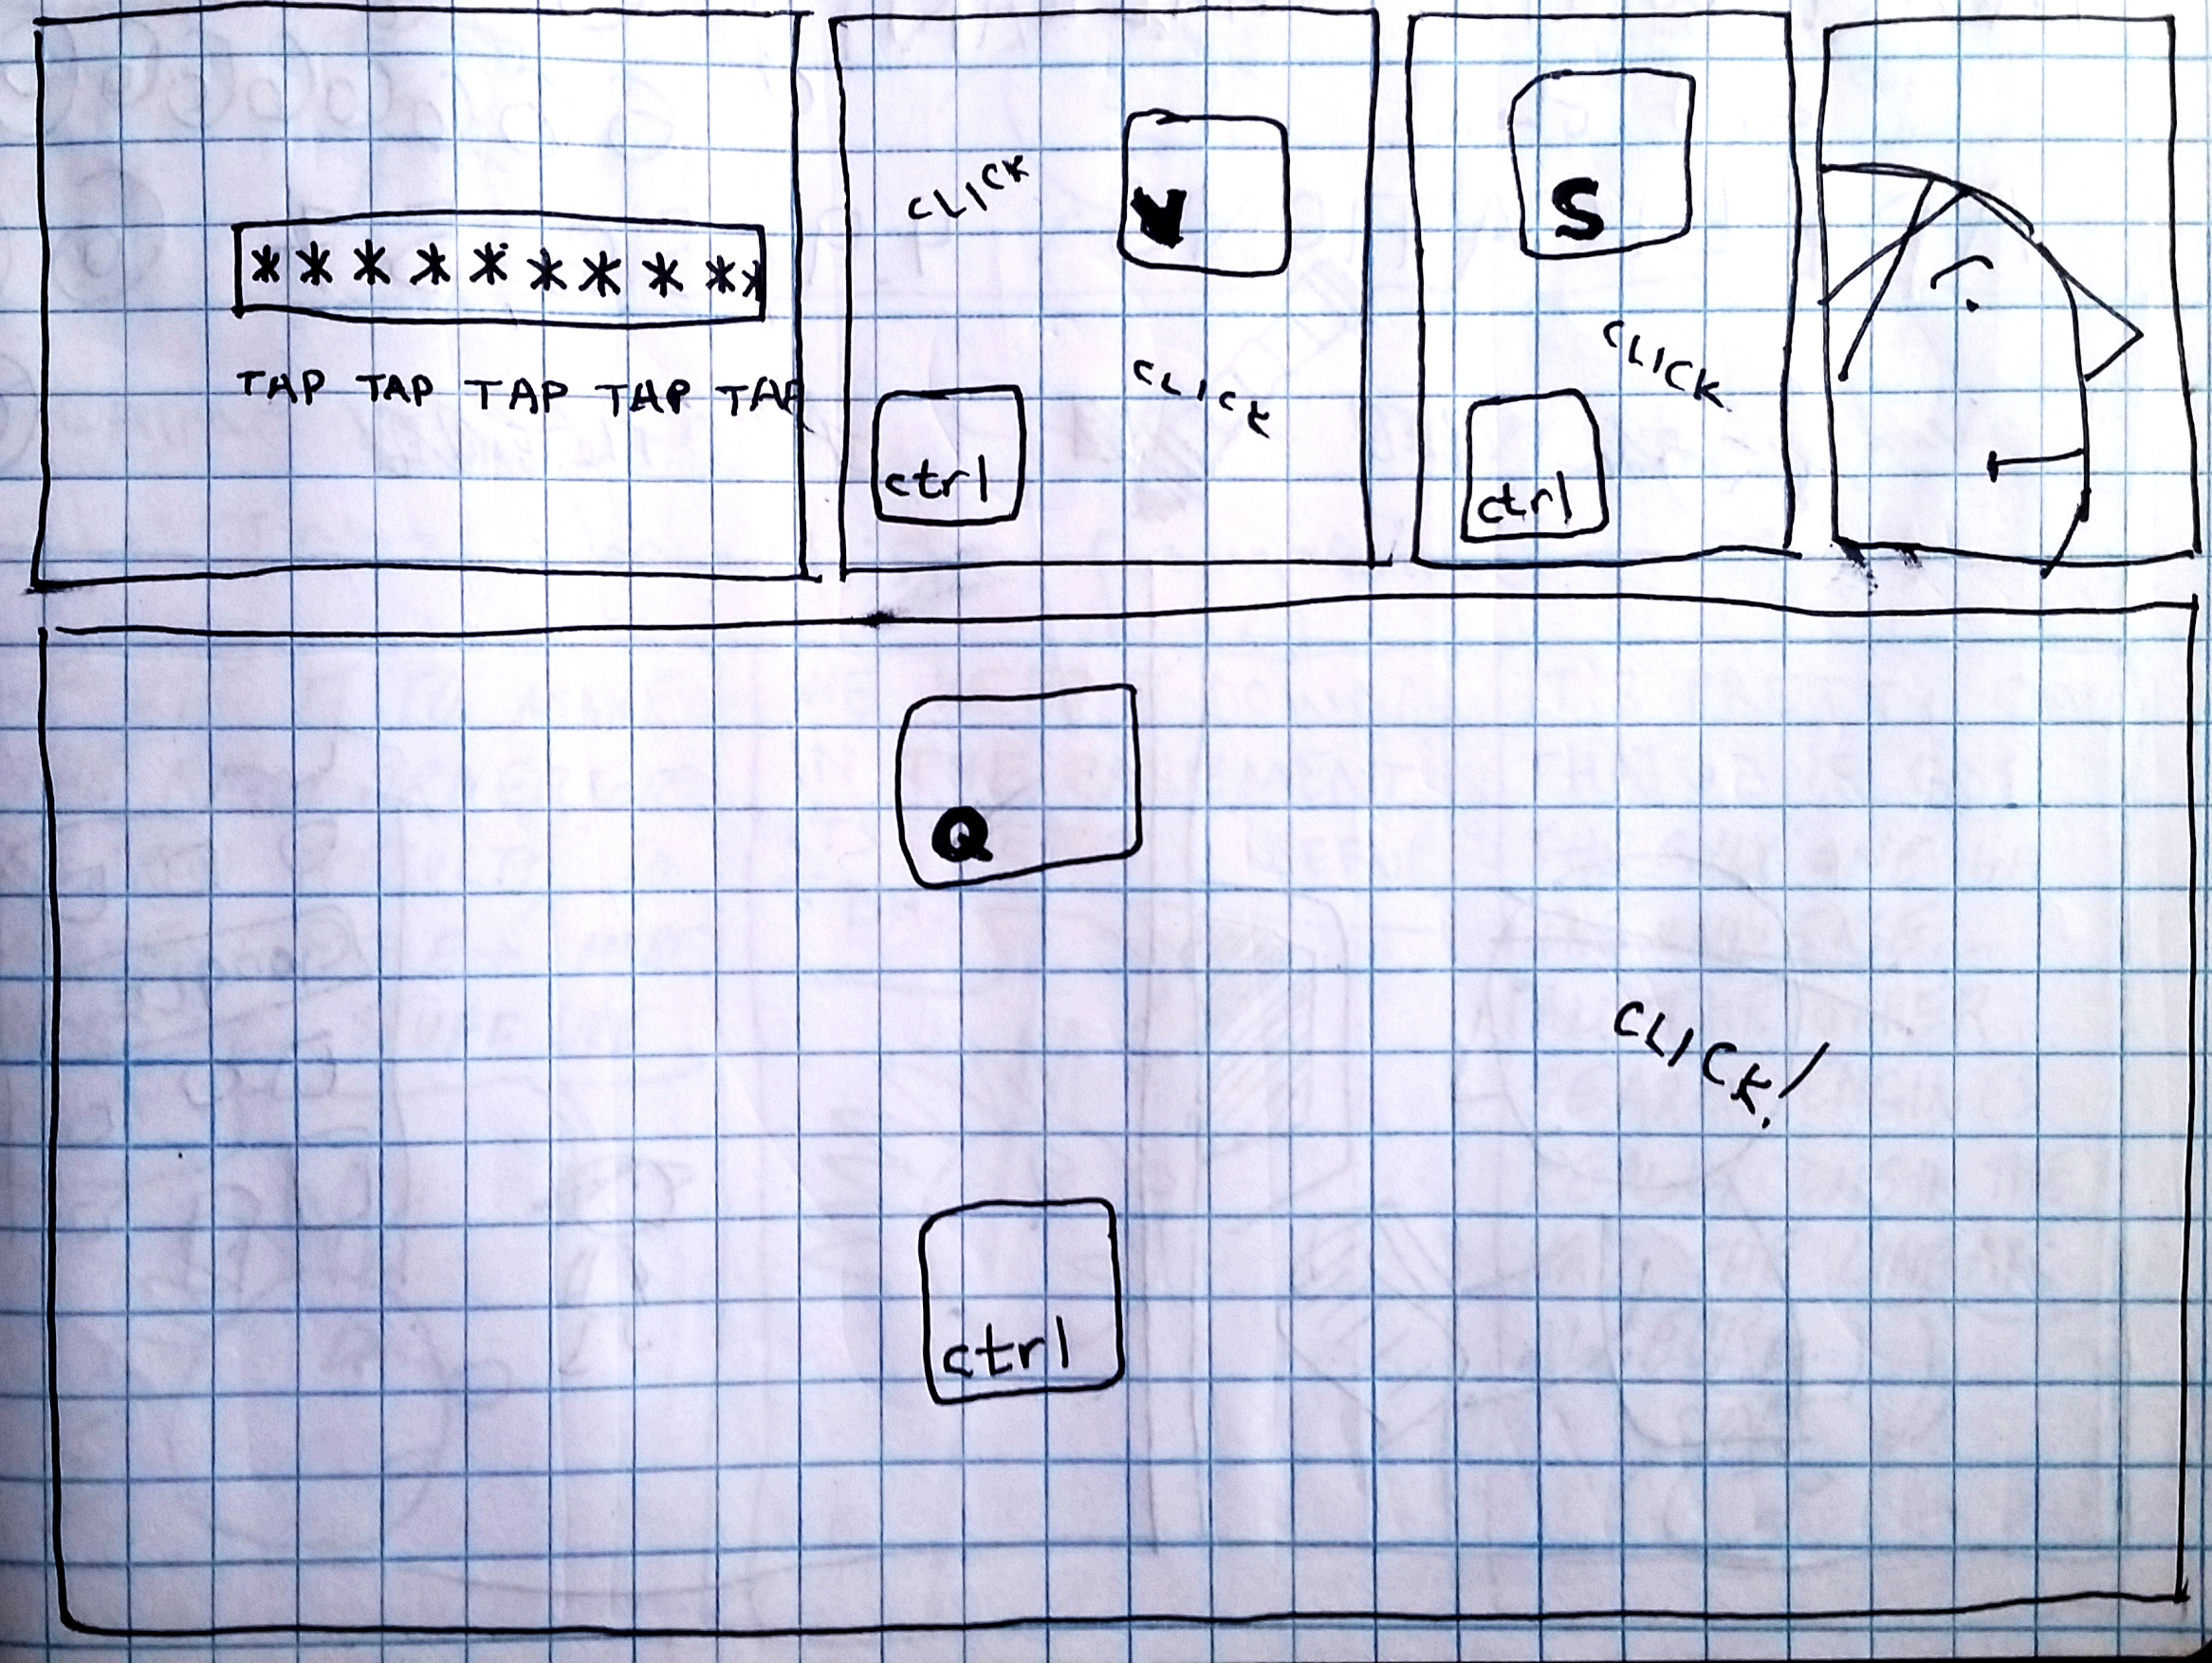 **********
TAP TAP TAP TAP TAP
CLICK
V
CLICK
ctrl
S
CLICK
ctrl
Q
CLICK!
ctrl